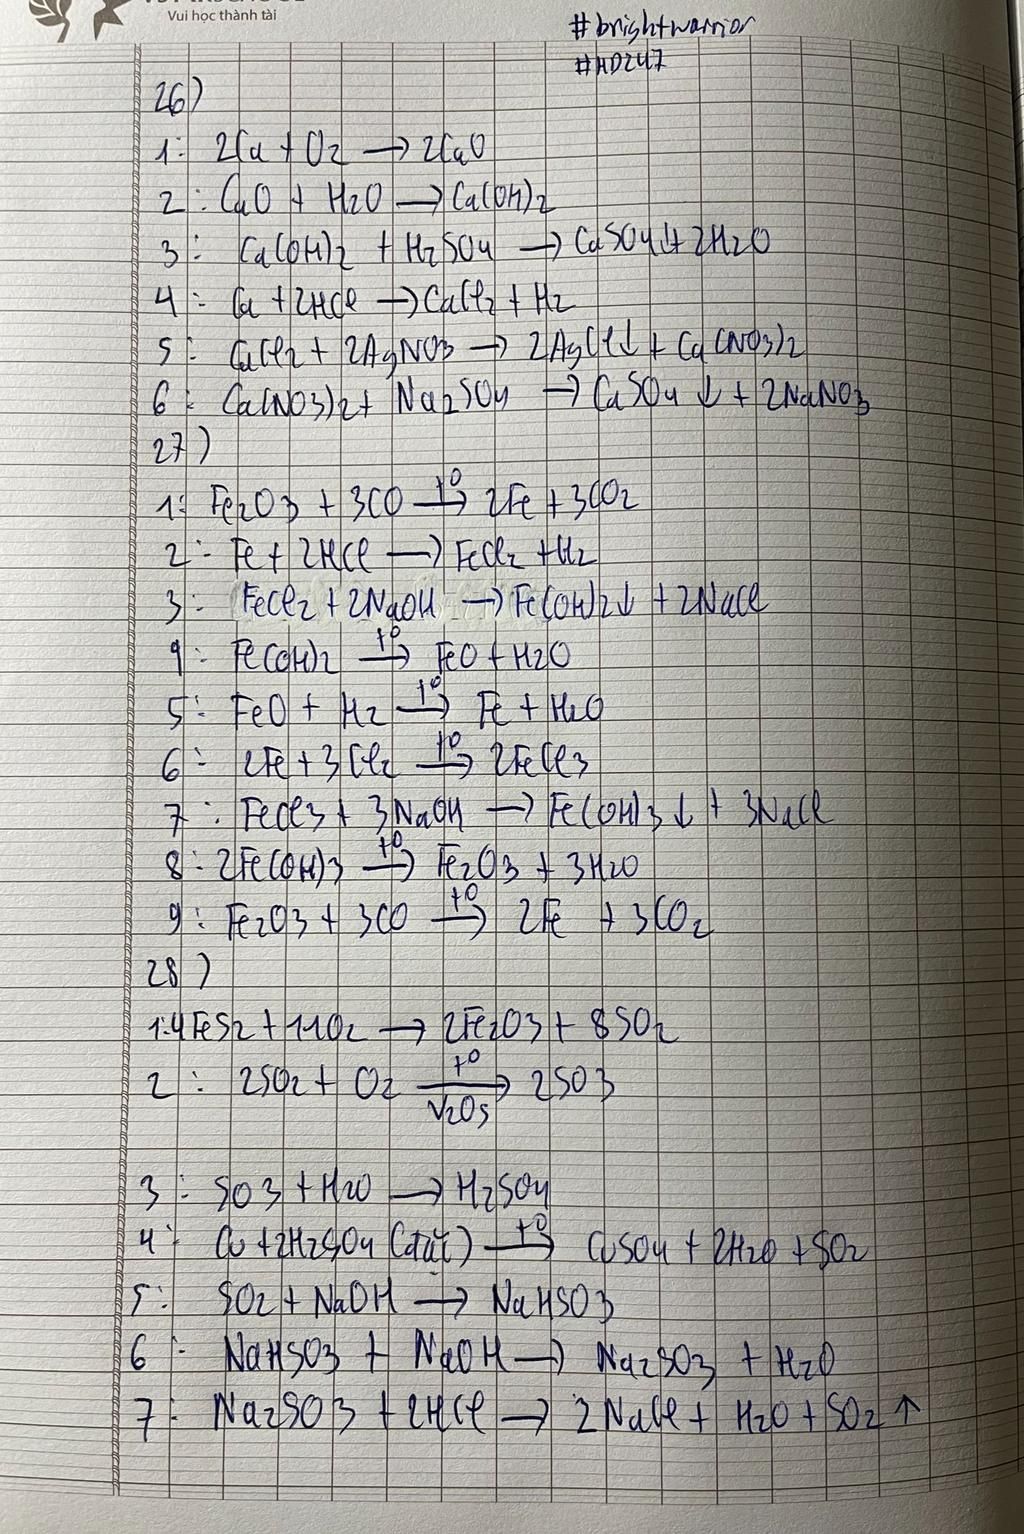 Vui học thành tài
#brightwarrior
#HD247
26)
1: 2Ca + O2 → 2CaO
2: CaO + H2O → Ca(OH)2
3: Ca(OH)2 + H2SO4 → CaSO4↓ + 2H2O
4: Ca + 2HCl → CaCl2 + H2
5: CaCl2 + 2AgNO3 → 2AgCl↓ + Ca(NO3)2
6: Ca(NO3)2 + Na2SO4 → CaSO4 ↓ + 2NaNO3
27)
1: Fe2O3 + 3CO t0→ 2Fe + 3CO2
2: Fe + 2HCl → FeCl2 + H2
3: FeCl2 + 2NaOH → Fe(OH)2↓ + 2NaCl
4: Fe(OH)2 t0→ FeO + H2O
5: FeO + H2 t0→ Fe + H2O
6: 2Fe + 3Cl2 t0→ 2FeCl3
7: FeCl3 + 3NaOH → Fe(OH)3↓ + 3NaCl
8: 2Fe(OH)3 t0→ Fe2O3 + 3H2O
9: Fe2O3 + 3CO t0→ 2Fe + 3CO2
28)
1: 4FeS2 + 11O2 → 2Fe2O3 + 8SO2
2: 2SO2 + O2 t0→ 2SO3
V2O5
3: SO3 + H2O → H2SO4
4: Cu + 2H2SO4 (đặc) t0→ CuSO4 + 2H2O + SO2
5: SO2 + NaOH → NaHSO3
6: NaHSO3 + NaOH → Na2SO3 + H2O
7: Na2SO3 + 2HCl → 2NaCl + H2O + SO2 ↑